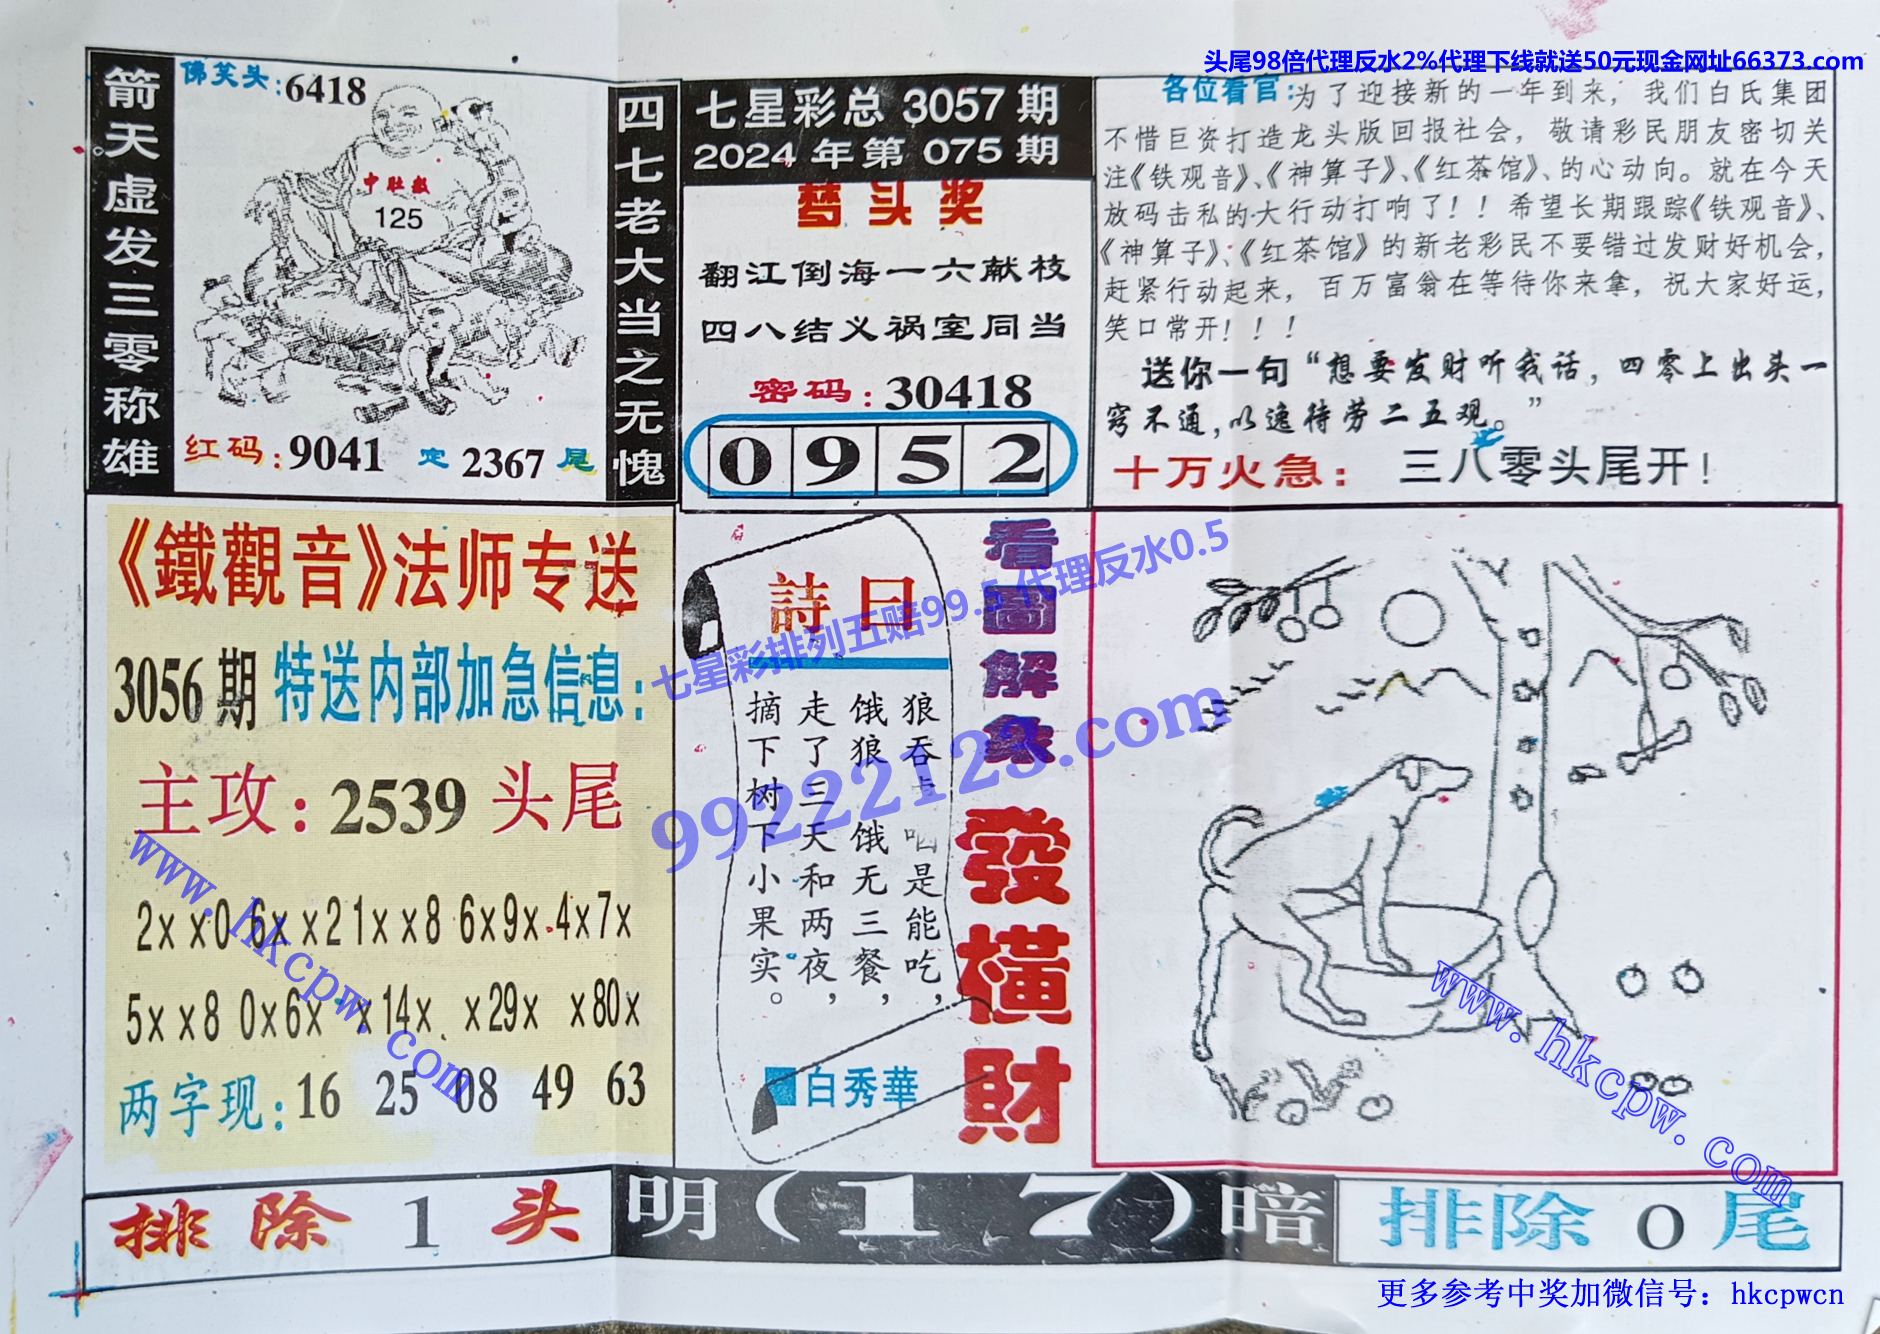 头尾98倍代理反水2%代理下线就送50元现金网址66373.com
箭天虚发三零称雄
佛笑头:6418
中肚数
125
红码:9041 定 2367 尾
四七老大当之无愧
七星彩总 3057 期
2024 年第 075 期
梦头奖
翻江倒海一六献枝
四八结义祸室同当
密码:30418
0 9 5 2
各位看官:为了迎接新的一年到来，我们白氏集团
不惜巨资打造龙头版回报社会，敬请彩民朋友密切关
注《铁观音》、《神算子》、《红茶馆》、的心动向。就在今天
放码击私的大行动打响了！！希望长期跟踪《铁观音》、
《神算子》、《红茶馆》的新老彩民不要错过发财好机会，
赶紧行动起来，百万富翁在等待你来拿，祝大家好运，
笑口常开！！！
送你一句“想要发财听我话，四零上出头一
窍不通，以逸待劳二五观。”
十万火急：三八零头尾开！
《鐵觀音》法师专送
3056期 特送内部加急信息：
主攻：2539 头尾
2××0 6××2 1××8 6×9× 4×7×
5××8 0×6× ×14× ×29× ×80×
两字现：16 25 08 49 63
詩曰
狼吞 咽是能吃，
饿狼饿无三餐，
走了三天和两夜，
摘下树下小果实。
白秀華
看圖解象
發橫財
七星彩排列五赔99.5 代理反水0.5
99222123.com
www.hkcpw.com
www.hkcpw.com
排除 1 头
明(17)暗
排除 0 尾
更多参考中奖加微信号：hkcpwcn